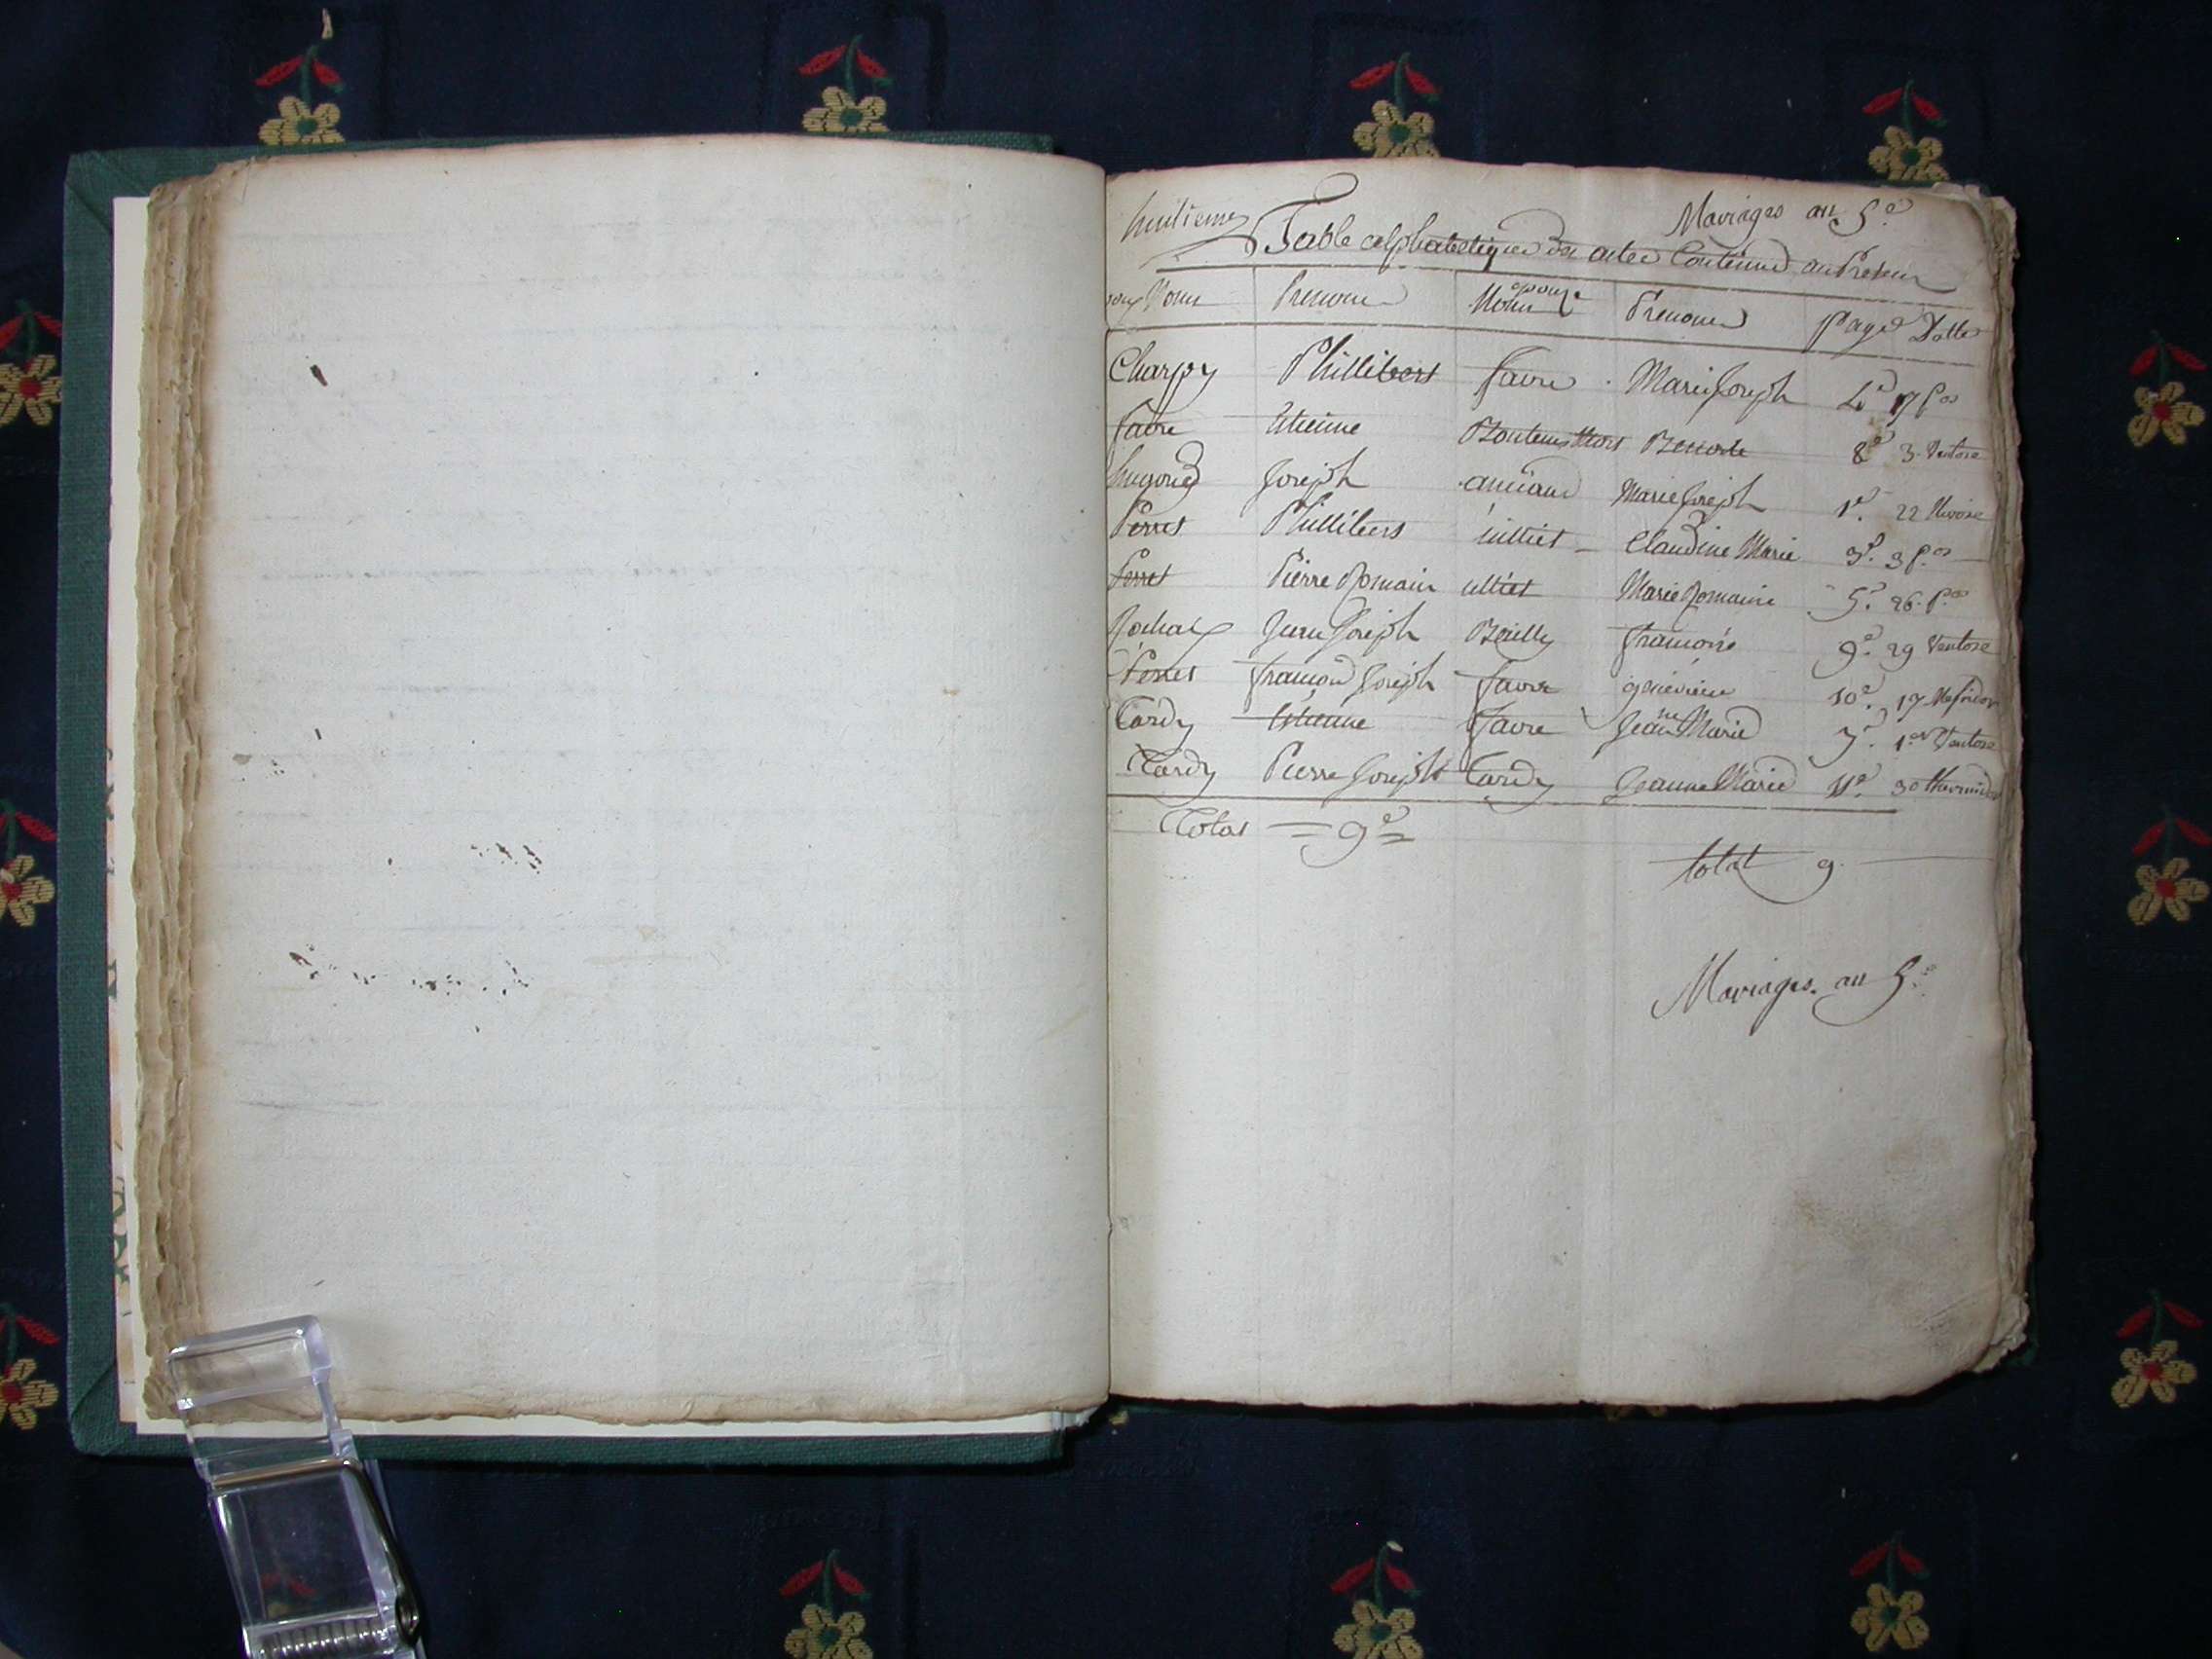 huitieme Mariages an 5e
Table alphabetique des actes Contenus au Present
Noms Prenoms epouse Noms Prenoms Pages Datte
Charpy Phillibert favre Marie Joseph 17 P.os
favre Etienne 8e 3 Ventose
Joseph Marie Joseph 1e. 22 Nivose
Perret Phillibert Julliet Claudine Marie 3e. 3 P.os
Perret Pierre Romain ulliet Marie Romaine 5e. 26 P.os
Rochaix Jean Joseph Bailly francoise 9e. 29 Ventose
Perret francois Joseph favre genevieve 10e. 17 Messidor
Tardy Etienne favre Jeanne Marie 7e. 1er Ventose
Tardy Pierre Joseph Tardy Jeanne Marie 11e. 30 thermidor
Total = 9e
total 9.
Mariages. an 5e